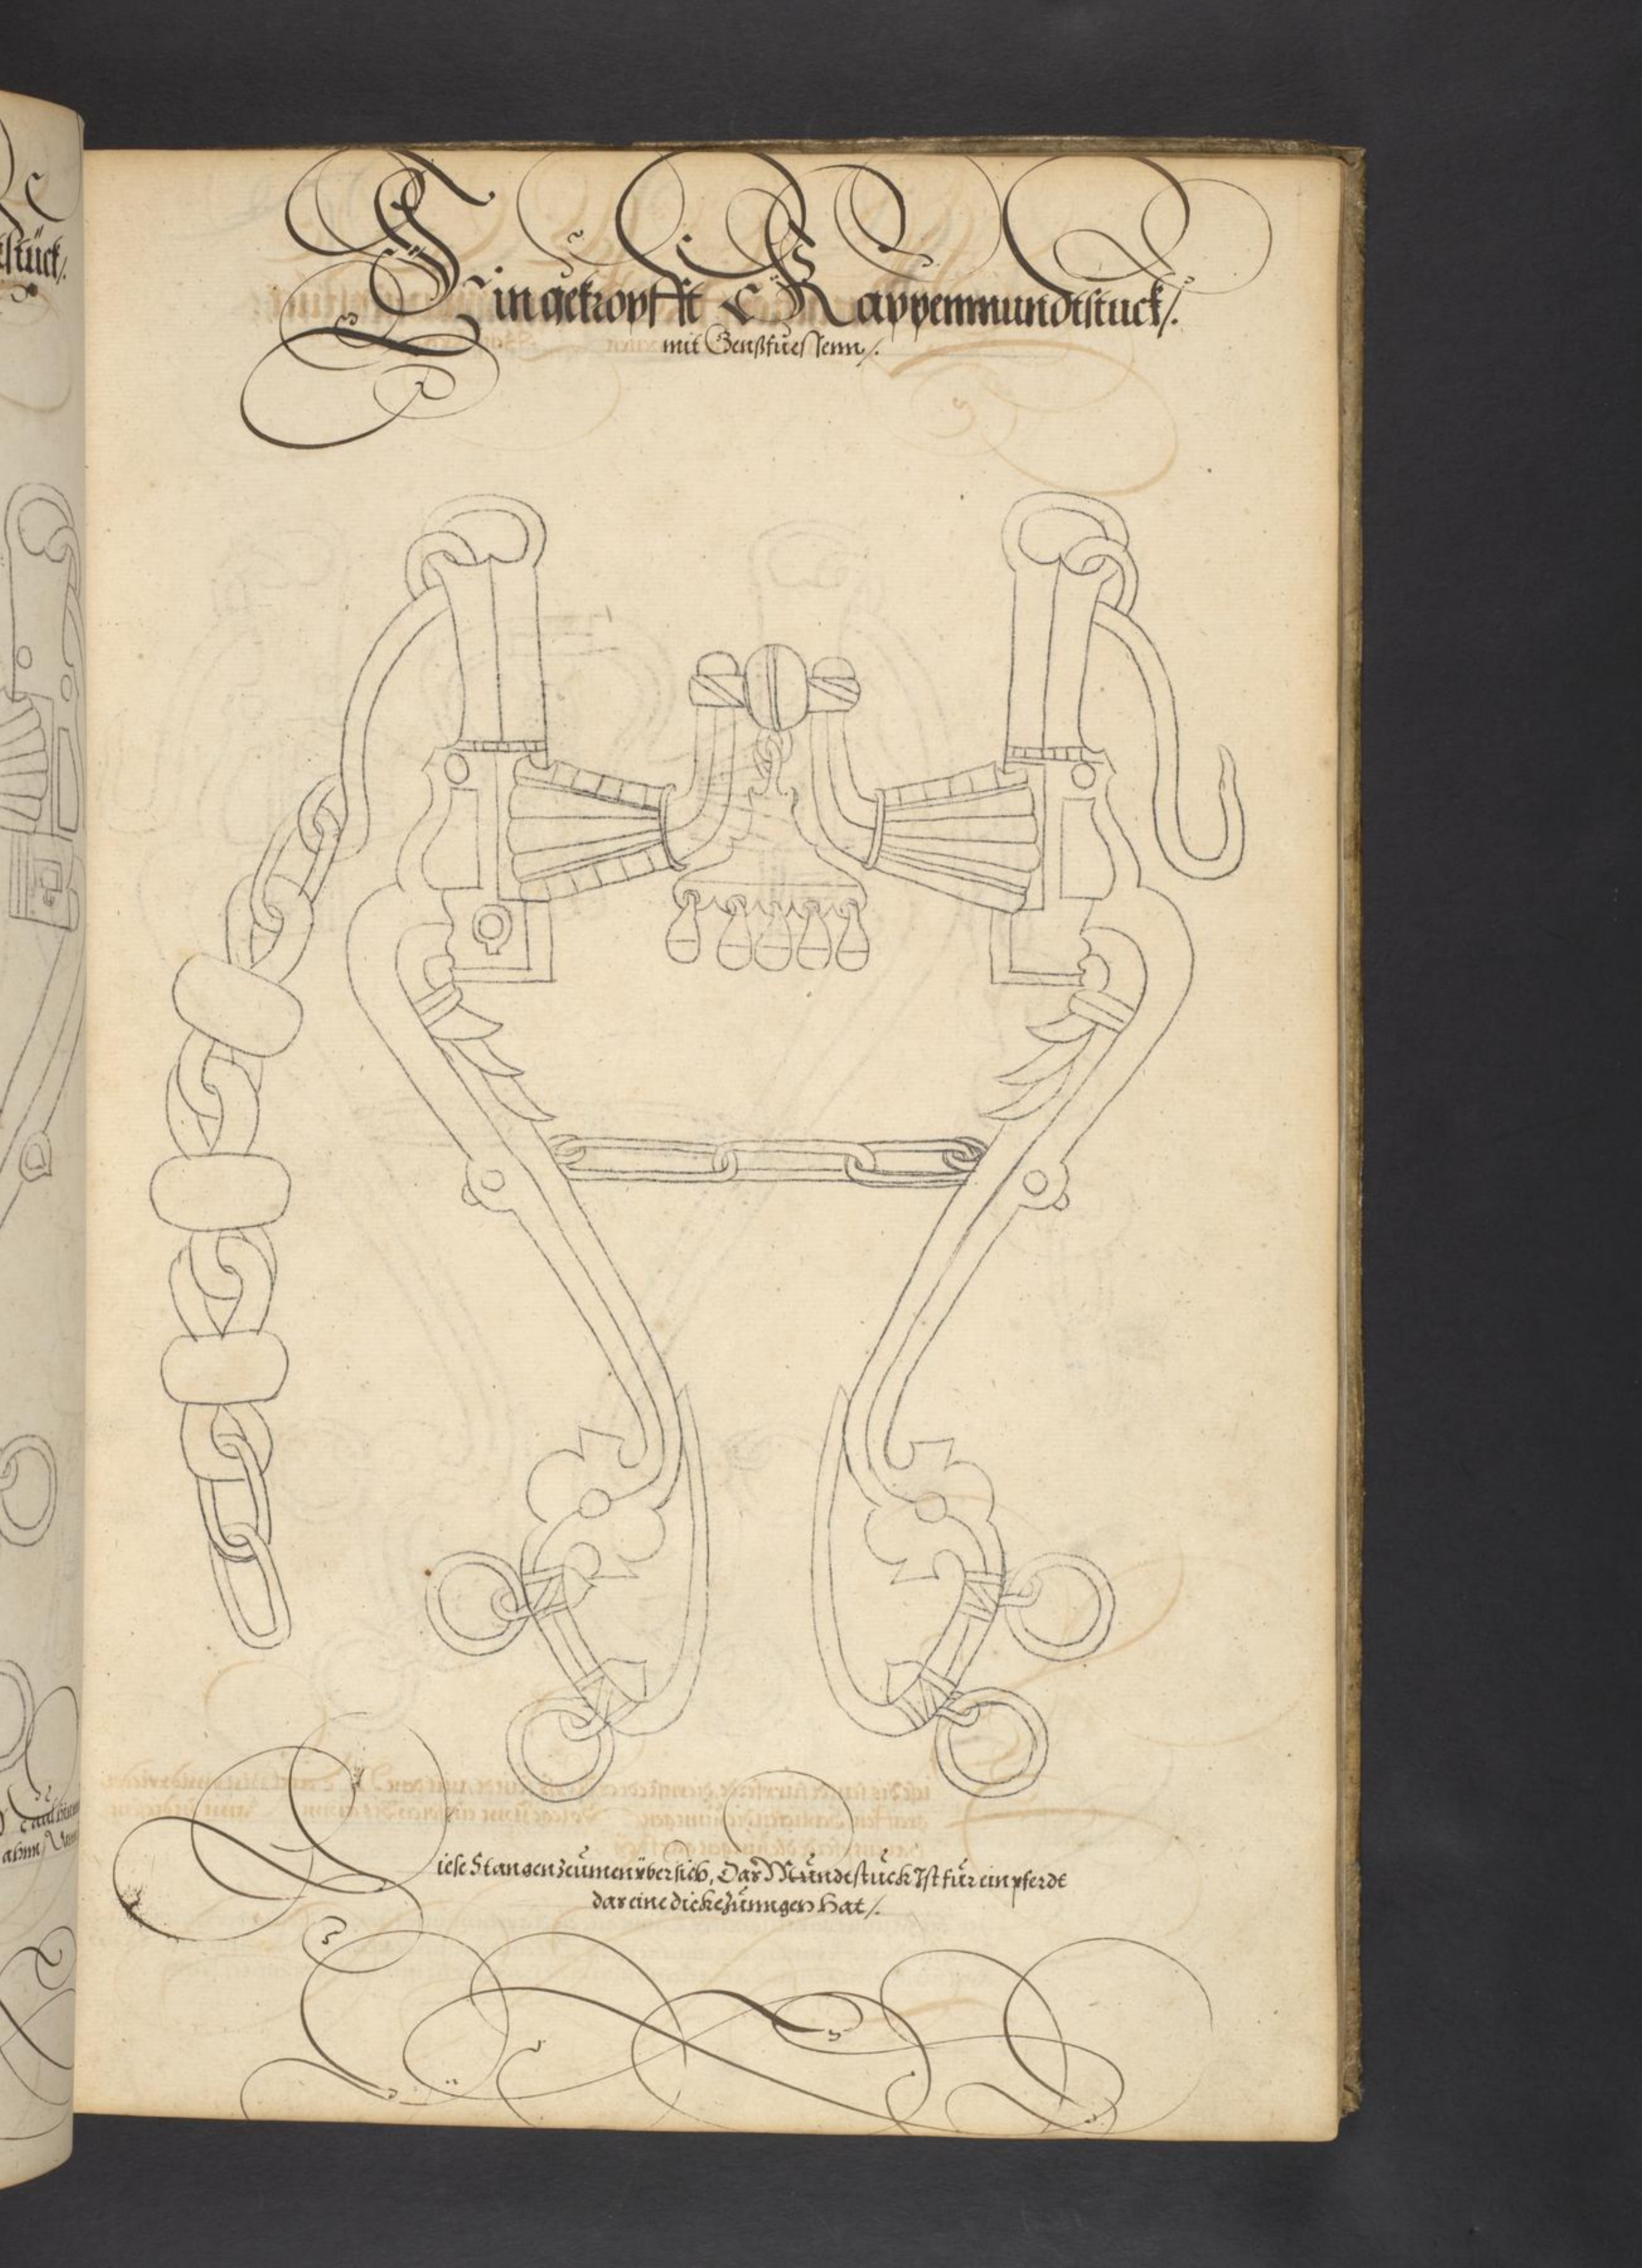 Ein gekropfft Kappenmundtstuck/.
mit Genßfuessenn/.
Diese Stangen zeumen ubersich, Das Mundtstuck Ist fur ein pferdt
das eine dicke zunngen hat/.
stück/.